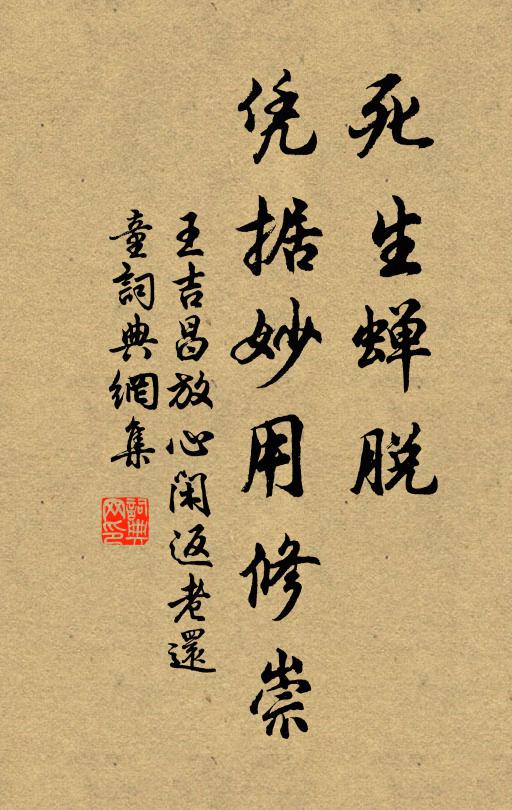 死生蝉脱
凭据妙用修崇
王吉昌放心闲返老還
童詞典網集
詞典
网印